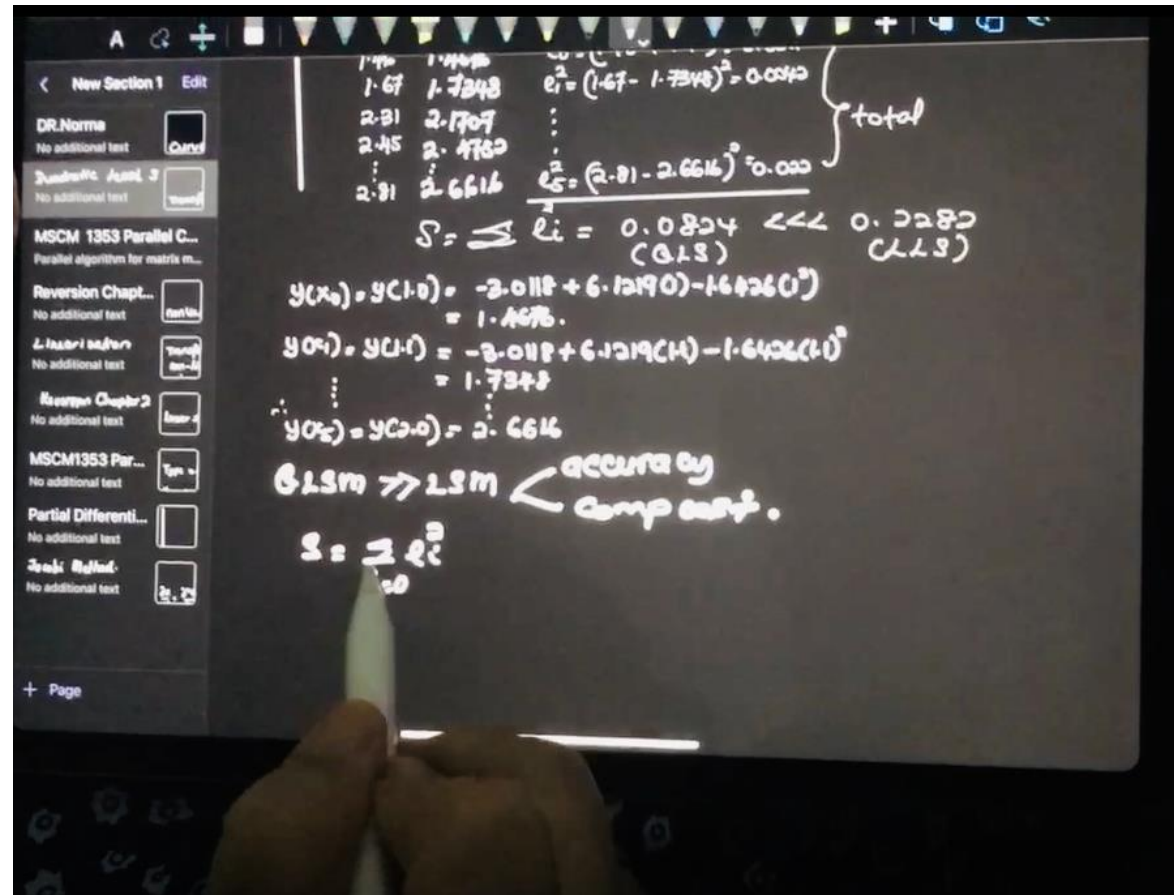 A
New Section 1 Edit
DR.Norma
No additional text
Quadratic
No additional text
MSCM 1353 Parallel C...
Parallel algorithm for matrix m...
Reversion Chapt...
No additional text
Linearisation
No additional text
Chapter 2
No additional text
MSCM1353 Par...
No additional text
Partial Differenti...
No additional text
Jacobi Method.
No additional text
+ Page
1.67 1.7348 e₁² = (1.67 - 1.7348)² = 0.0042
2.31 2.1707 ⋮ total
2.45 2.4782
⋮ ⋮
2.81 2.6616 e₅² = (2.81 - 2.6616)² = 0.022
S = Σ eᵢ² = 0.0824 <<< 0.2282
(QLS) (LLS)
y(x₀) = y(1.0) = -3.0118 + 6.1219() - 1.6426(1²)
= 1.4676.
y(x₁) = y(1.1) = -3.0118 + 6.1219(1.1) - 1.6426(1.1)²
= 1.7348
⋮ ⋮
∴ y(x₅) = y(2.0) = 2.6616
QLSM >> LSM < accuracy
S = Σ eᵢ²
=0